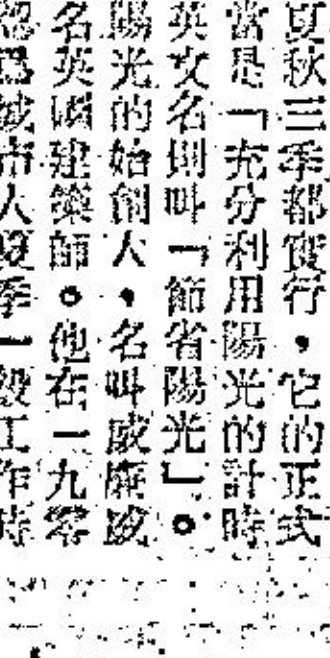 夏秋三季都實行，它的正式
當是「充分利用陽光的計時
英文名則叫「節省陽光」。
陽光的始創人，名叫威廉
名英國建築師。他在一九零
認為城市人夏季一般工作時